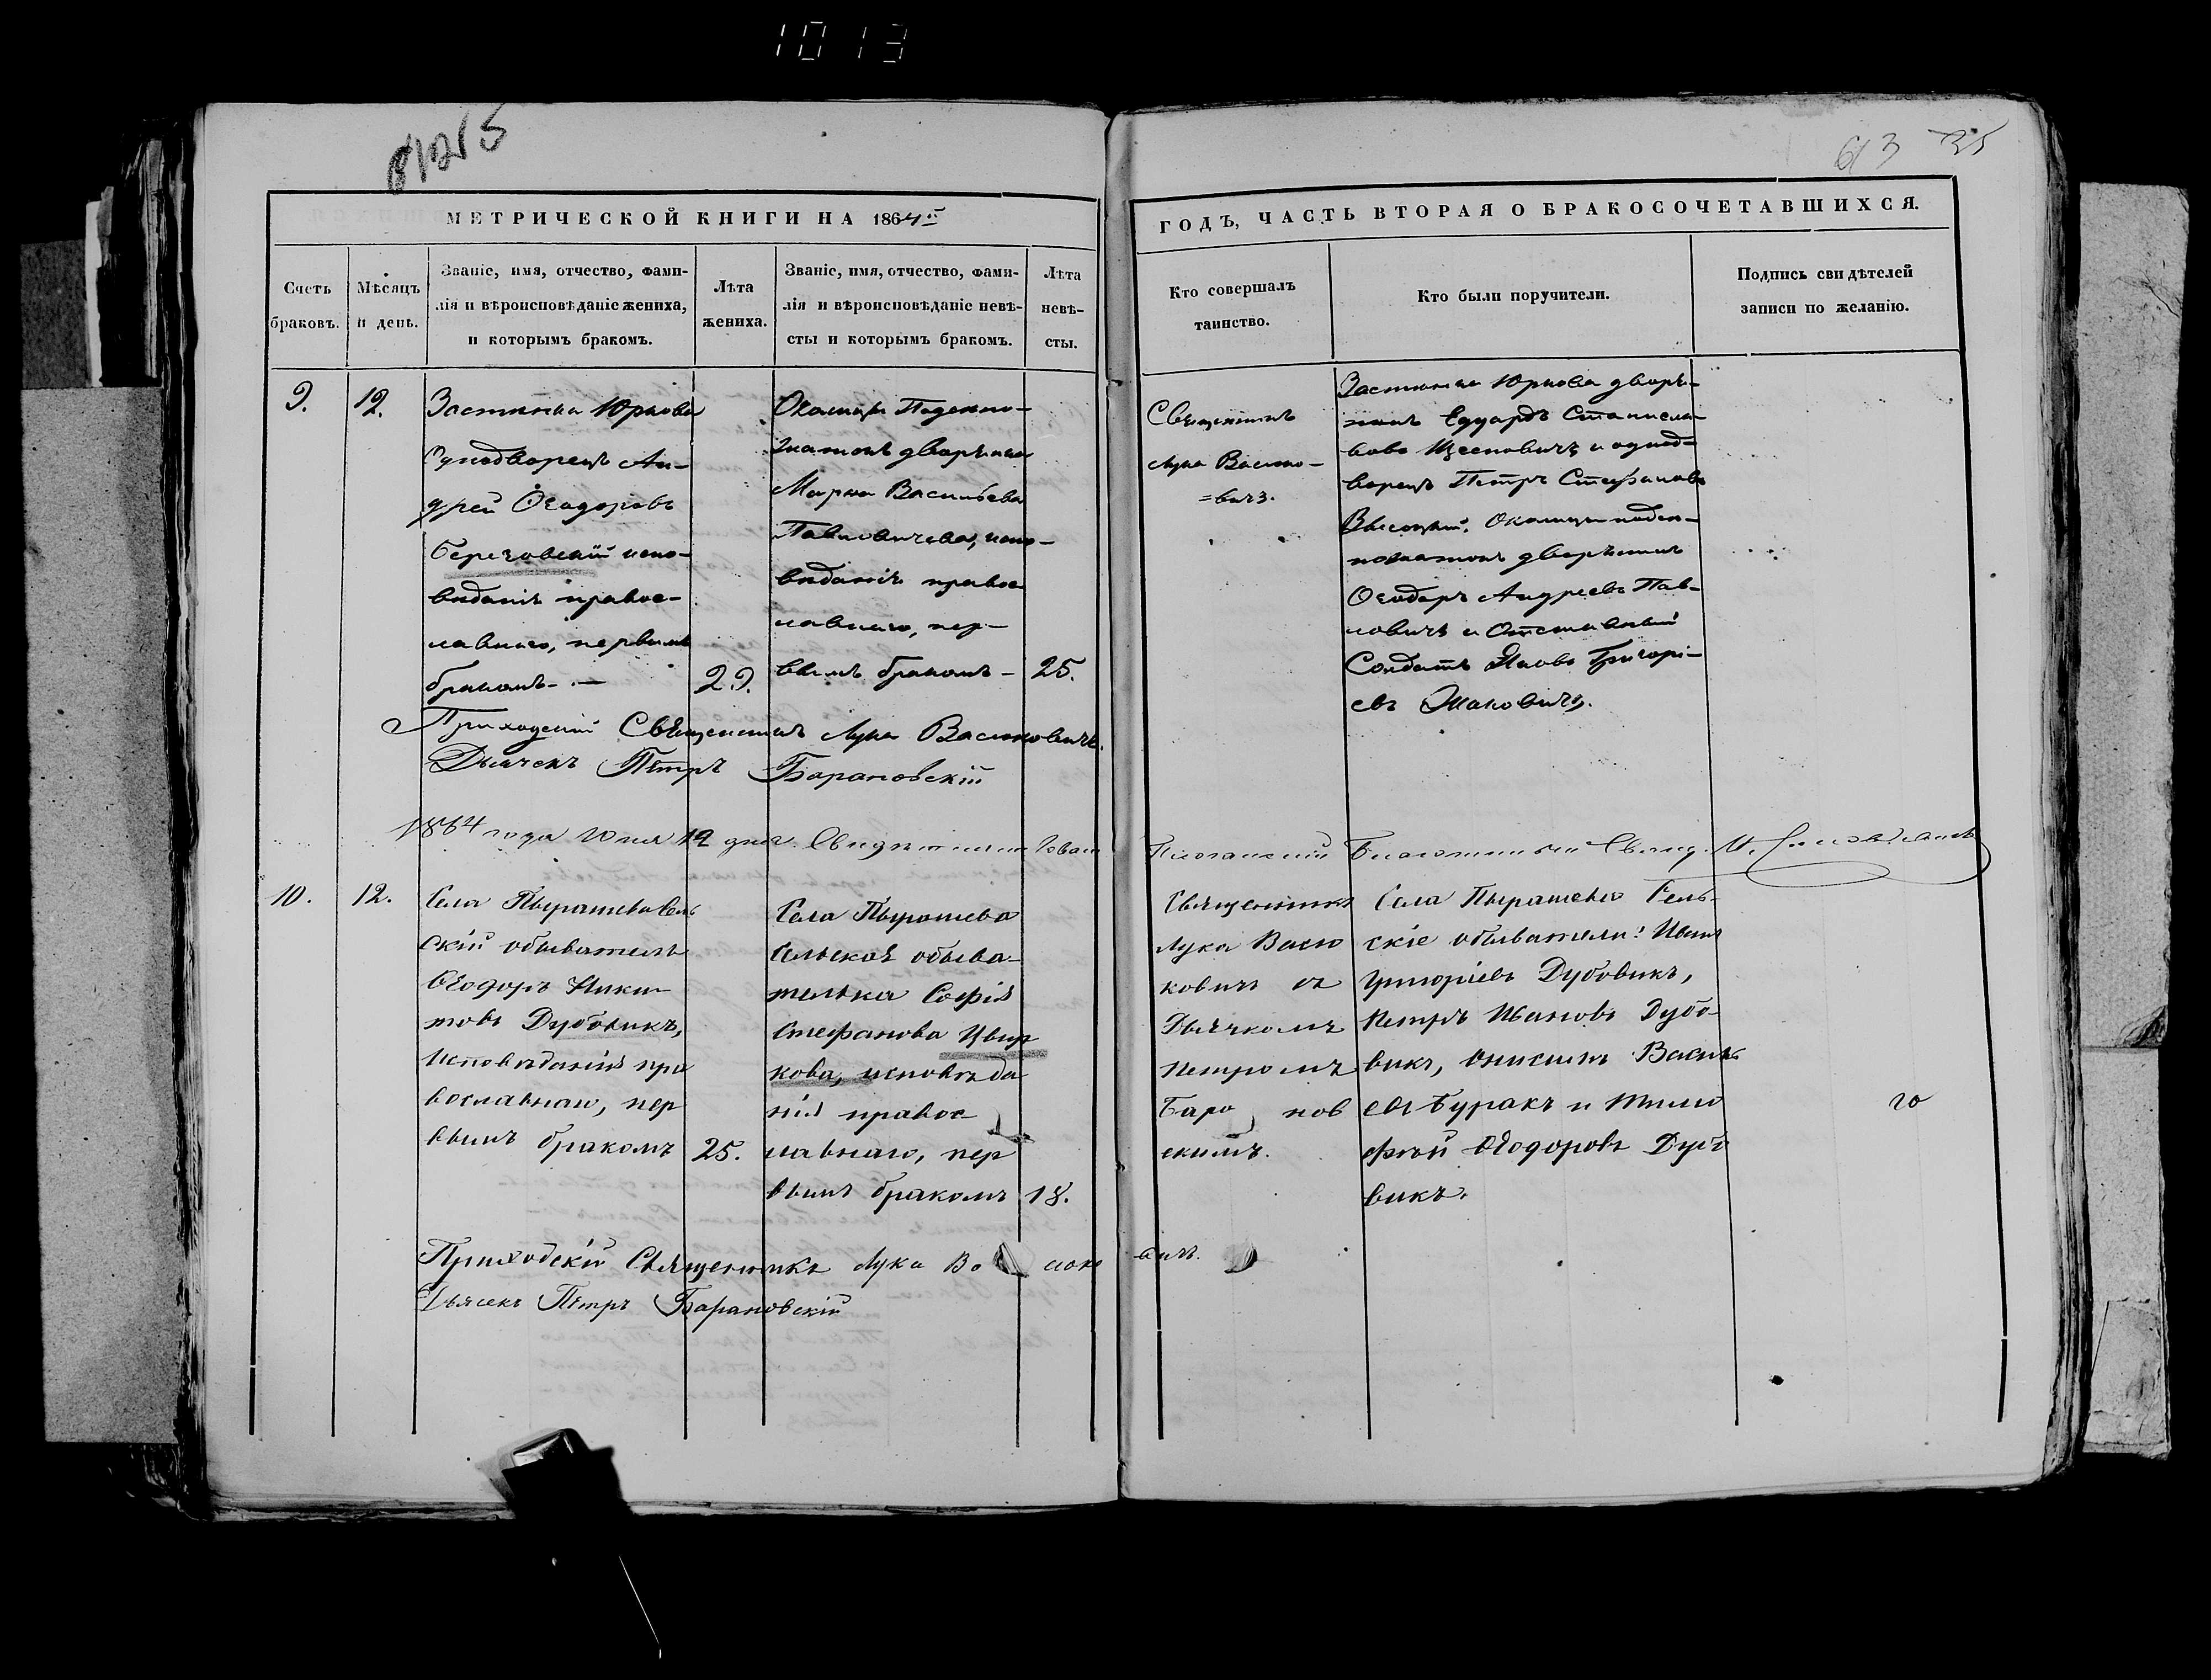 1013
613 35
МЕТРИЧЕСКОЙ КНИГИ НА 1864й
ГОДЪ, ЧАСТЬ ВТОРАЯ О БРАКОСОЧЕТАВШИХСЯ.
Счетъ
браковъ.
Мѣсяцъ
и день.
Званіе, имя, отчество, фами-
лія и вѣроисповѣданіе жениха,
и которымъ бракомъ.
Лѣта
жениха.
Званіе, имя, отчество, фами-
лія и вѣроисповѣданіе невѣ-
сты и которымъ бракомъ.
Лѣта
невѣ-
сты.
Кто совершалъ
таинство.
Кто были поручители.
Подпись свидѣтелей
записи по желанію.
9.
12.
Застѣнка Юркова
Однодворецъ Ан-
дрей Ѳеодоровъ
Березовскій испо-
вѣданія правос-
лавнаго, первымъ
бракомъ. —
29.
Околицы
дворянка
Марья Васильева
Павловичева, испо-
вѣданія правос
лавнаго, пер-
вымъ бракомъ —
25.
Священникъ
Лука Васюко-
=вичъ.
Застѣнка Юркова дворя-
нинъ Едуардъ Станисла-
вовъ и однод-
ворецъ Петръ Стефановъ
Высоцкій. Околицы
дворянинъ
Ѳеодоръ Андреевъ Пав-
ловичъ и Отставный
Солдатъ Яковъ Григорі-
евъ
Приходскій Священникъ Лука Васюковичъ.
Дьячекъ Пётръ Барановскій
1864 года Юня 19 дня. Свидѣтельствовалъ
Благочинный Свящ.
10.
12.
Села Пырашева Сель
скій обыватель
Ѳеодоръ Ники
товъ Дубовикъ,
исповѣданія пра
вославнаго, пер
вымъ бракомъ
25.
Села Пырашева
Сельская обыва-
телька Софія
Стефанова Цвир
кова, исповѣда
нія правос
лавнаго, пер
вымъ бракомъ
18.
Священникъ
Лука Васю
ковичъ съ
Дьячкомъ
Петромъ
Баро нов
скимъ.
Села Пырашева Сель-
скіе обыватели: Иванъ
Григоріевъ Дубовикъ,
Петръ Ивановъ Дубо-
викъ, Онисимъ Василь
евъ Буракъ и Тимо
фѣй Ѳеодоровъ Дубо
викъ.
го
Приходскій Священникъ Лука Ва сюко вичъ.
Дьячекъ Пётръ Барановскій